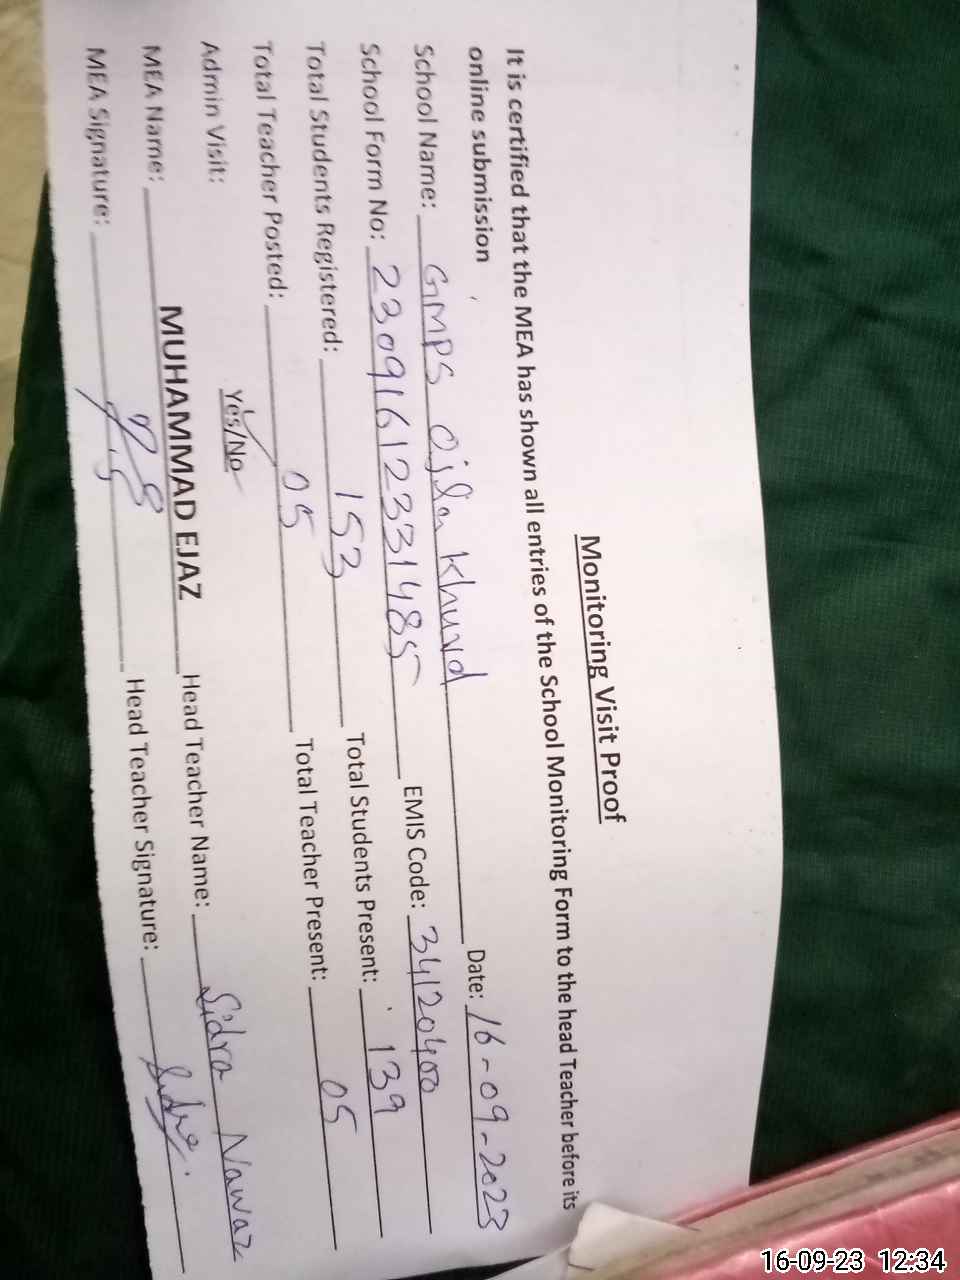 Monitoring Visit Proof
It is certified that the MEA has shown all entries of the School Monitoring Form to the head Teacher before its
online submission
School Name: GMPS Ojla Khurd Date: 16-09-2023
School Form No: 23091612331485 EMIS Code: 34120400
Total Students Registered: 153 Total Students Present: 139
Total Teacher Posted: 05 Total Teacher Present: 05
Admin Visit: Yes/No
MEA Name: MUHAMMAD EJAZ Head Teacher Name: Sidra Nawaz
MEA Signature: Head Teacher Signature: Sidra
16-09-23 12:34